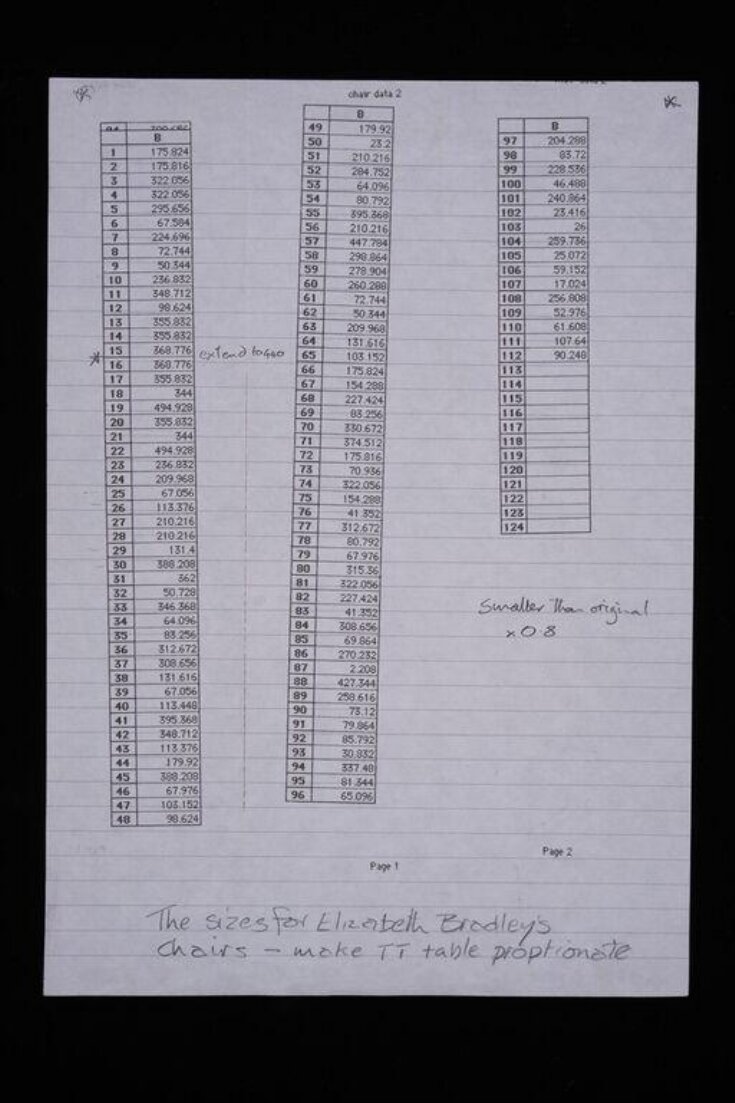 chair data 2
B
1 175.824
2 175.816
3 322.056
4 322.056
5 295.656
6 67.584
7 224.696
8 72.744
9 50.344
10 236.832
11 348.712
12 98.624
13 355.832
14 355.832
15 368.776 extend to 440
16 368.776
17 355.832
18 344
19 494.928
20 355.832
21 344
22 494.928
23 236.832
24 209.968
25 67.056
26 113.376
27 210.216
28 210.216
29 131.4
30 388.208
31 362
32 50.728
33 346.368
34 64.096
35 83.256
36 312.672
37 308.656
38 131.616
39 67.056
40 113.448
41 395.368
42 348.712
43 113.376
44 179.92
45 388.208
46 67.976
47 103.152
48 98.624
B
49 179.92
50 23.2
51 210.216
52 284.752
53 64.096
54 80.792
55 395.368
56 210.216
57 447.784
58 298.864
59 278.904
60 260.288
61 72.744
62 50.344
63 209.968
64 131.616
65 103.152
66 175.824
67 154.288
68 227.424
69 83.256
70 330.672
71 374.512
72 175.816
73 70.936
74 322.056
75 154.288
76 41.352
77 312.672
78 80.792
79 67.976
80 315.36
81 322.056
82 227.424
83 41.352
84 308.656
85 69.864
86 270.232
87 2.208
88 427.344
89 258.616
90 73.12
91 79.864
92 85.792
93 30.832
94 337.48
95 81.344
96 65.096
Page 1
B
97 204.288
98 83.72
99 228.536
100 46.488
101 240.864
102 23.416
103 26
104 259.736
105 25.072
106 59.152
107 17.024
108 256.808
109 52.976
110 61.608
111 107.64
112 90.248
113
114
115
116
117
118
119
120
121
122
123
124
Smaller than original
x 0.8
Page 2
The sizes for Elizabeth Bradley's
Chairs - make TT table proptionate